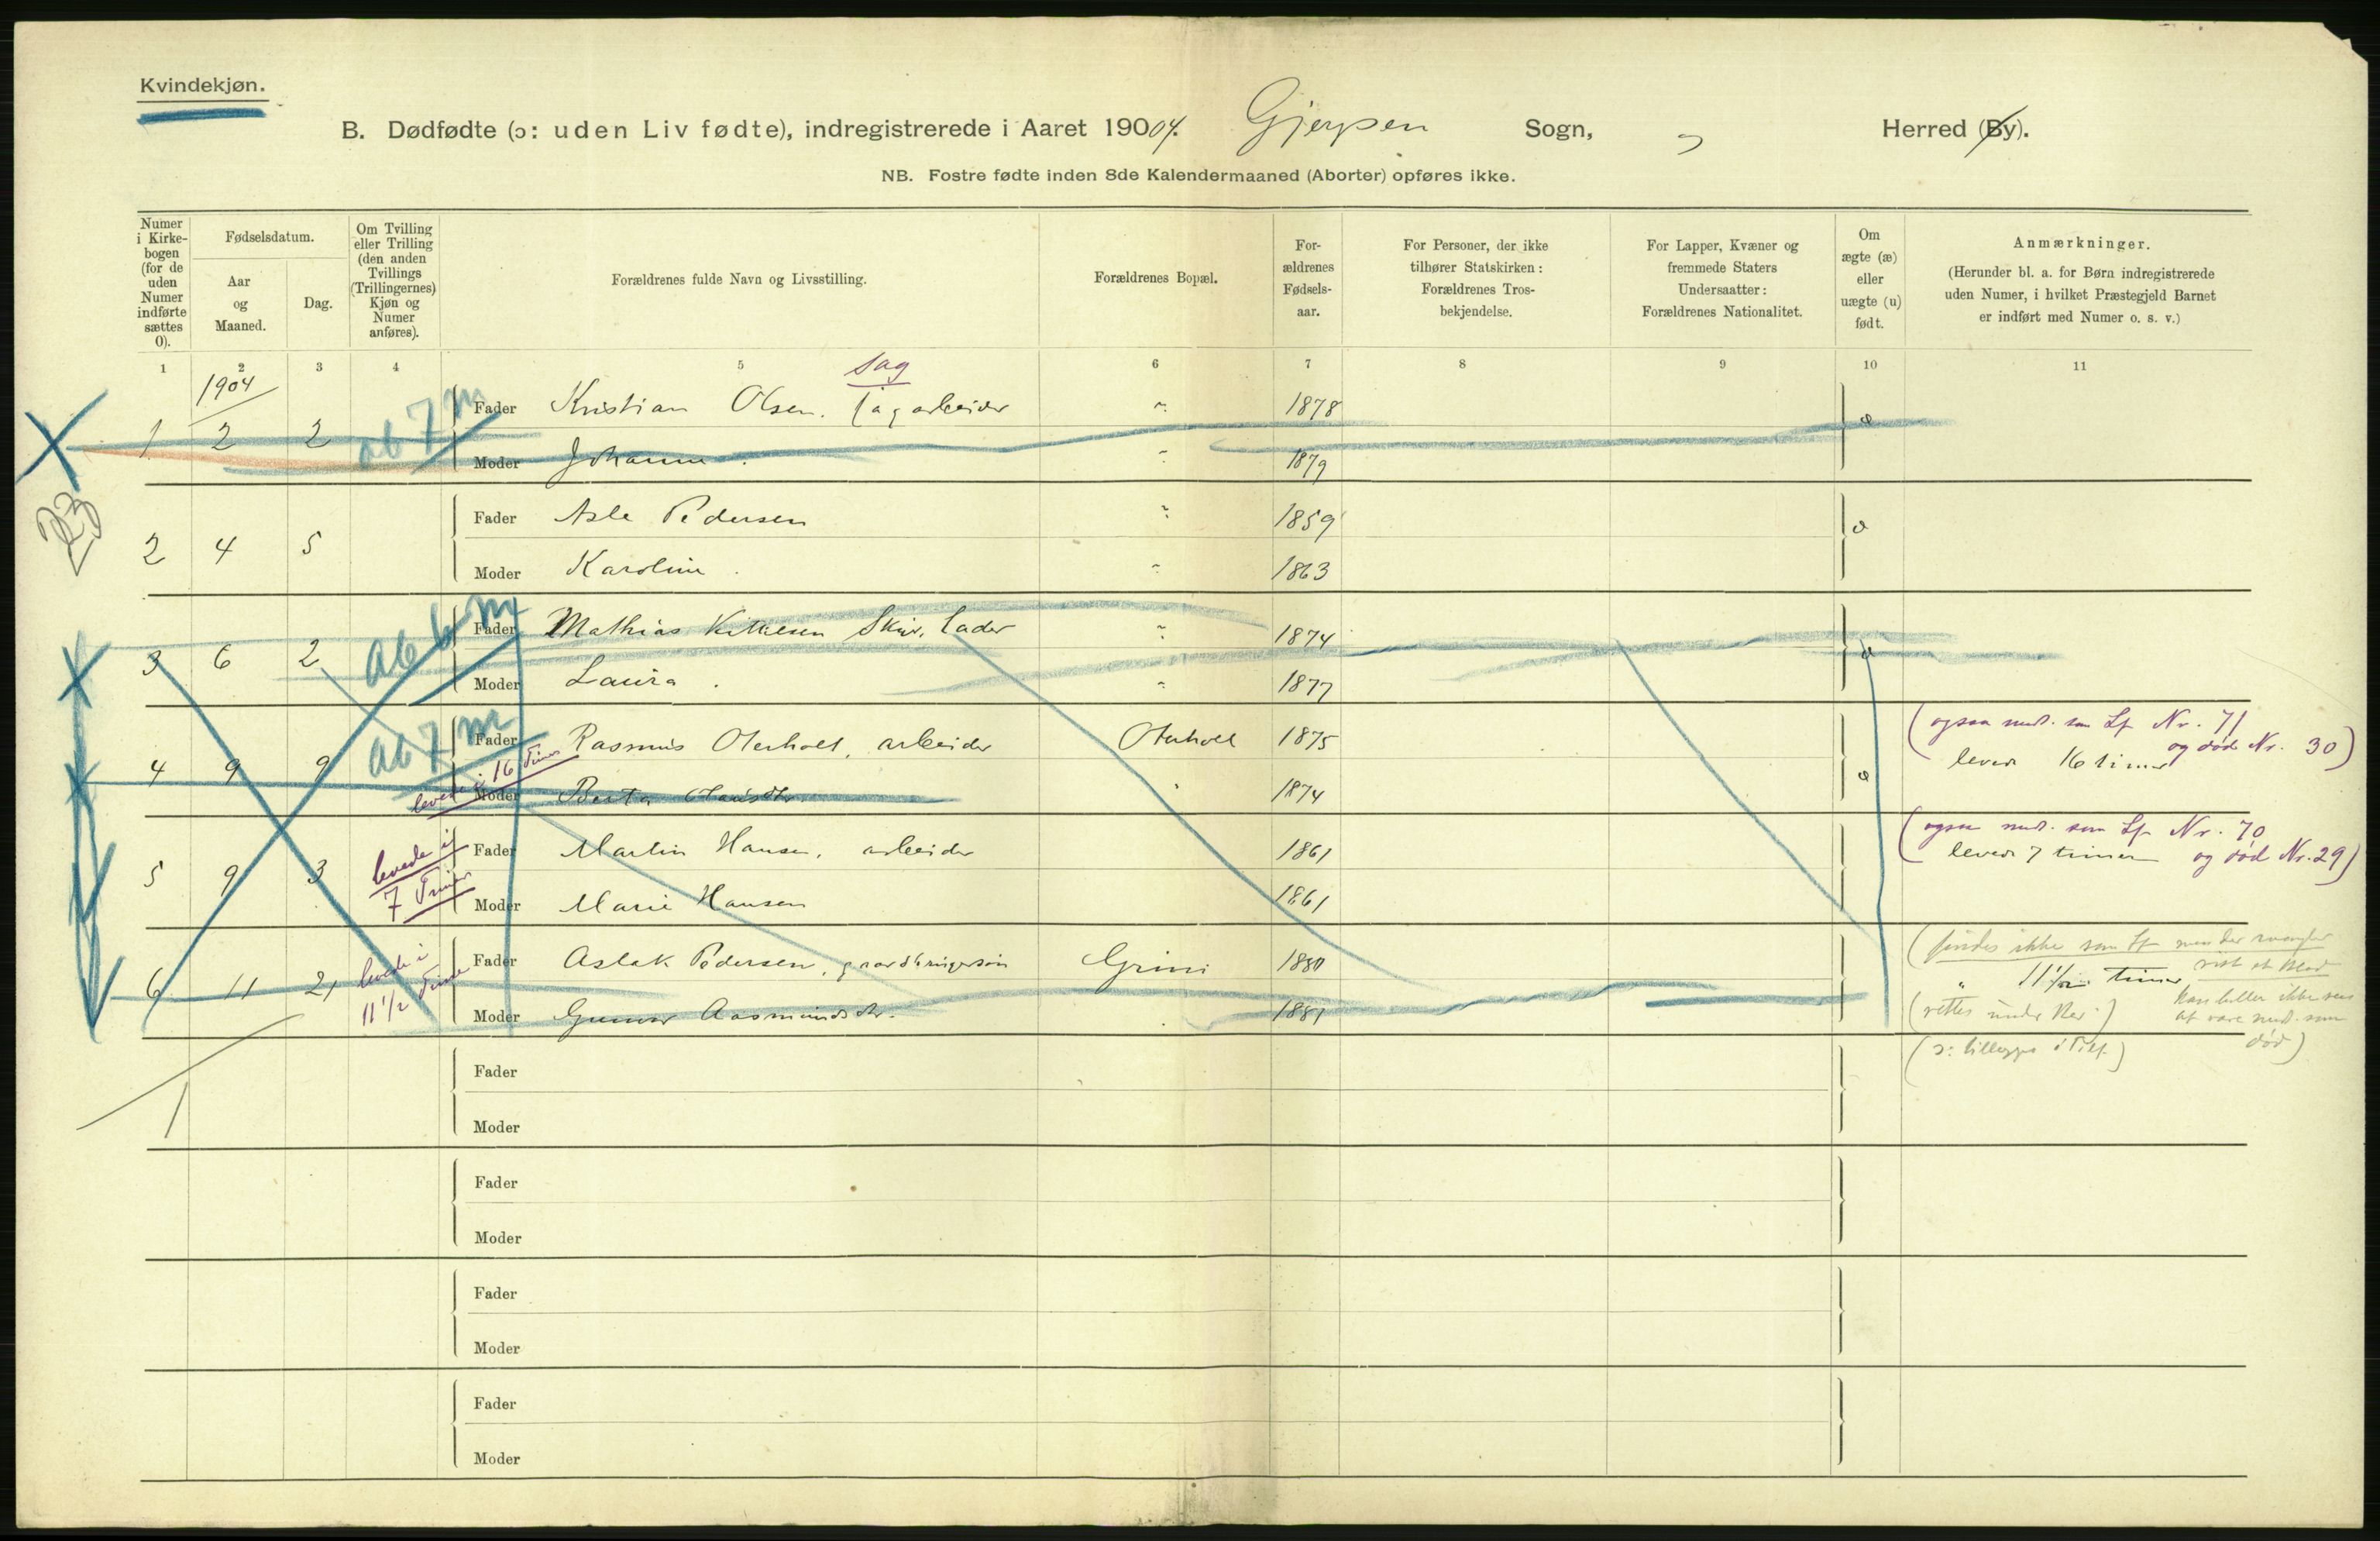 Kvindekjøn.
B. Dødfødte (ɔ: uden Liv fødte), indregistrerede i Aaret 19004. Gjerpen Sogn, Herred (By).
NB. Fostre fødte inden 8de Kalendermaaned (Aborter) opføres ikke.
Numer i Kirke-bogen (for de uden Numer indførte sættes 0).
Fødselsdatum.
Aar og Maaned.
Dag.
Om Tvilling eller Trilling (den anden Tvillings (Trillingernes) Kjøn og Numer anføres).
Forældrenes fulde Navn og Livsstilling.
Forældrenes Bopæl.
For-ældrenes Fødsels-aar.
For Personer, der ikke tilhører Statskirken: Forældrenes Tros-bekjendelse.
For Lapper, Kvæner og fremmede Staters Undersaatter: Forældrenes Nationalitet.
Om ægte (æ) eller uægte (u) født.
Anmærkninger.
(Herunder bl. a. for Børn indregistrerede uden Numer, i hvilket Præstegjeld Barnet er indført med Numer o. s. v.)
1 2 3 4 5 6 7 8 9 10 11
1904
sag
1 2 2 ab 7 m Fader Kristian Olsen. arbeider 1878
Moder Johanne. 1879
23
2 4 5 Fader Asle Pedersen 1859
Moder Karoline. 1863
3 6 2 ab 6 m Fader Mathias Kittilsen 1874
Moder Laura. 1877
4 9 9 ab 7 m Fader Rasmus Oterholt, arbeider Oterholt 1875
(ogsaa med. som Lf Nr. 71
og død Nr. 30)
lever 16 timer
levede i 16 Timer
Moder Berta 1874
5 9 3 levede i 7 Timer Fader Martin Hansen, arbeider 1861
(ogsaa med. som Lf Nr. 70
lever 7 timer og død Nr. 29)
Moder Marie Hansen 1861
6 11 21 levede i 11 1/2 Time Fader Aslak Pedersen, Grini 1880
(findes ikke som Lf men der mangler
vist et Blad
" 11 1/2 timer
Moder Gunvor Aasmundsdtr. 1881
(rettes under
kan heller ikke sees
at være med. som
død)
1
Fader
Moder
Fader
Moder
Fader
Moder
Fader
Moder